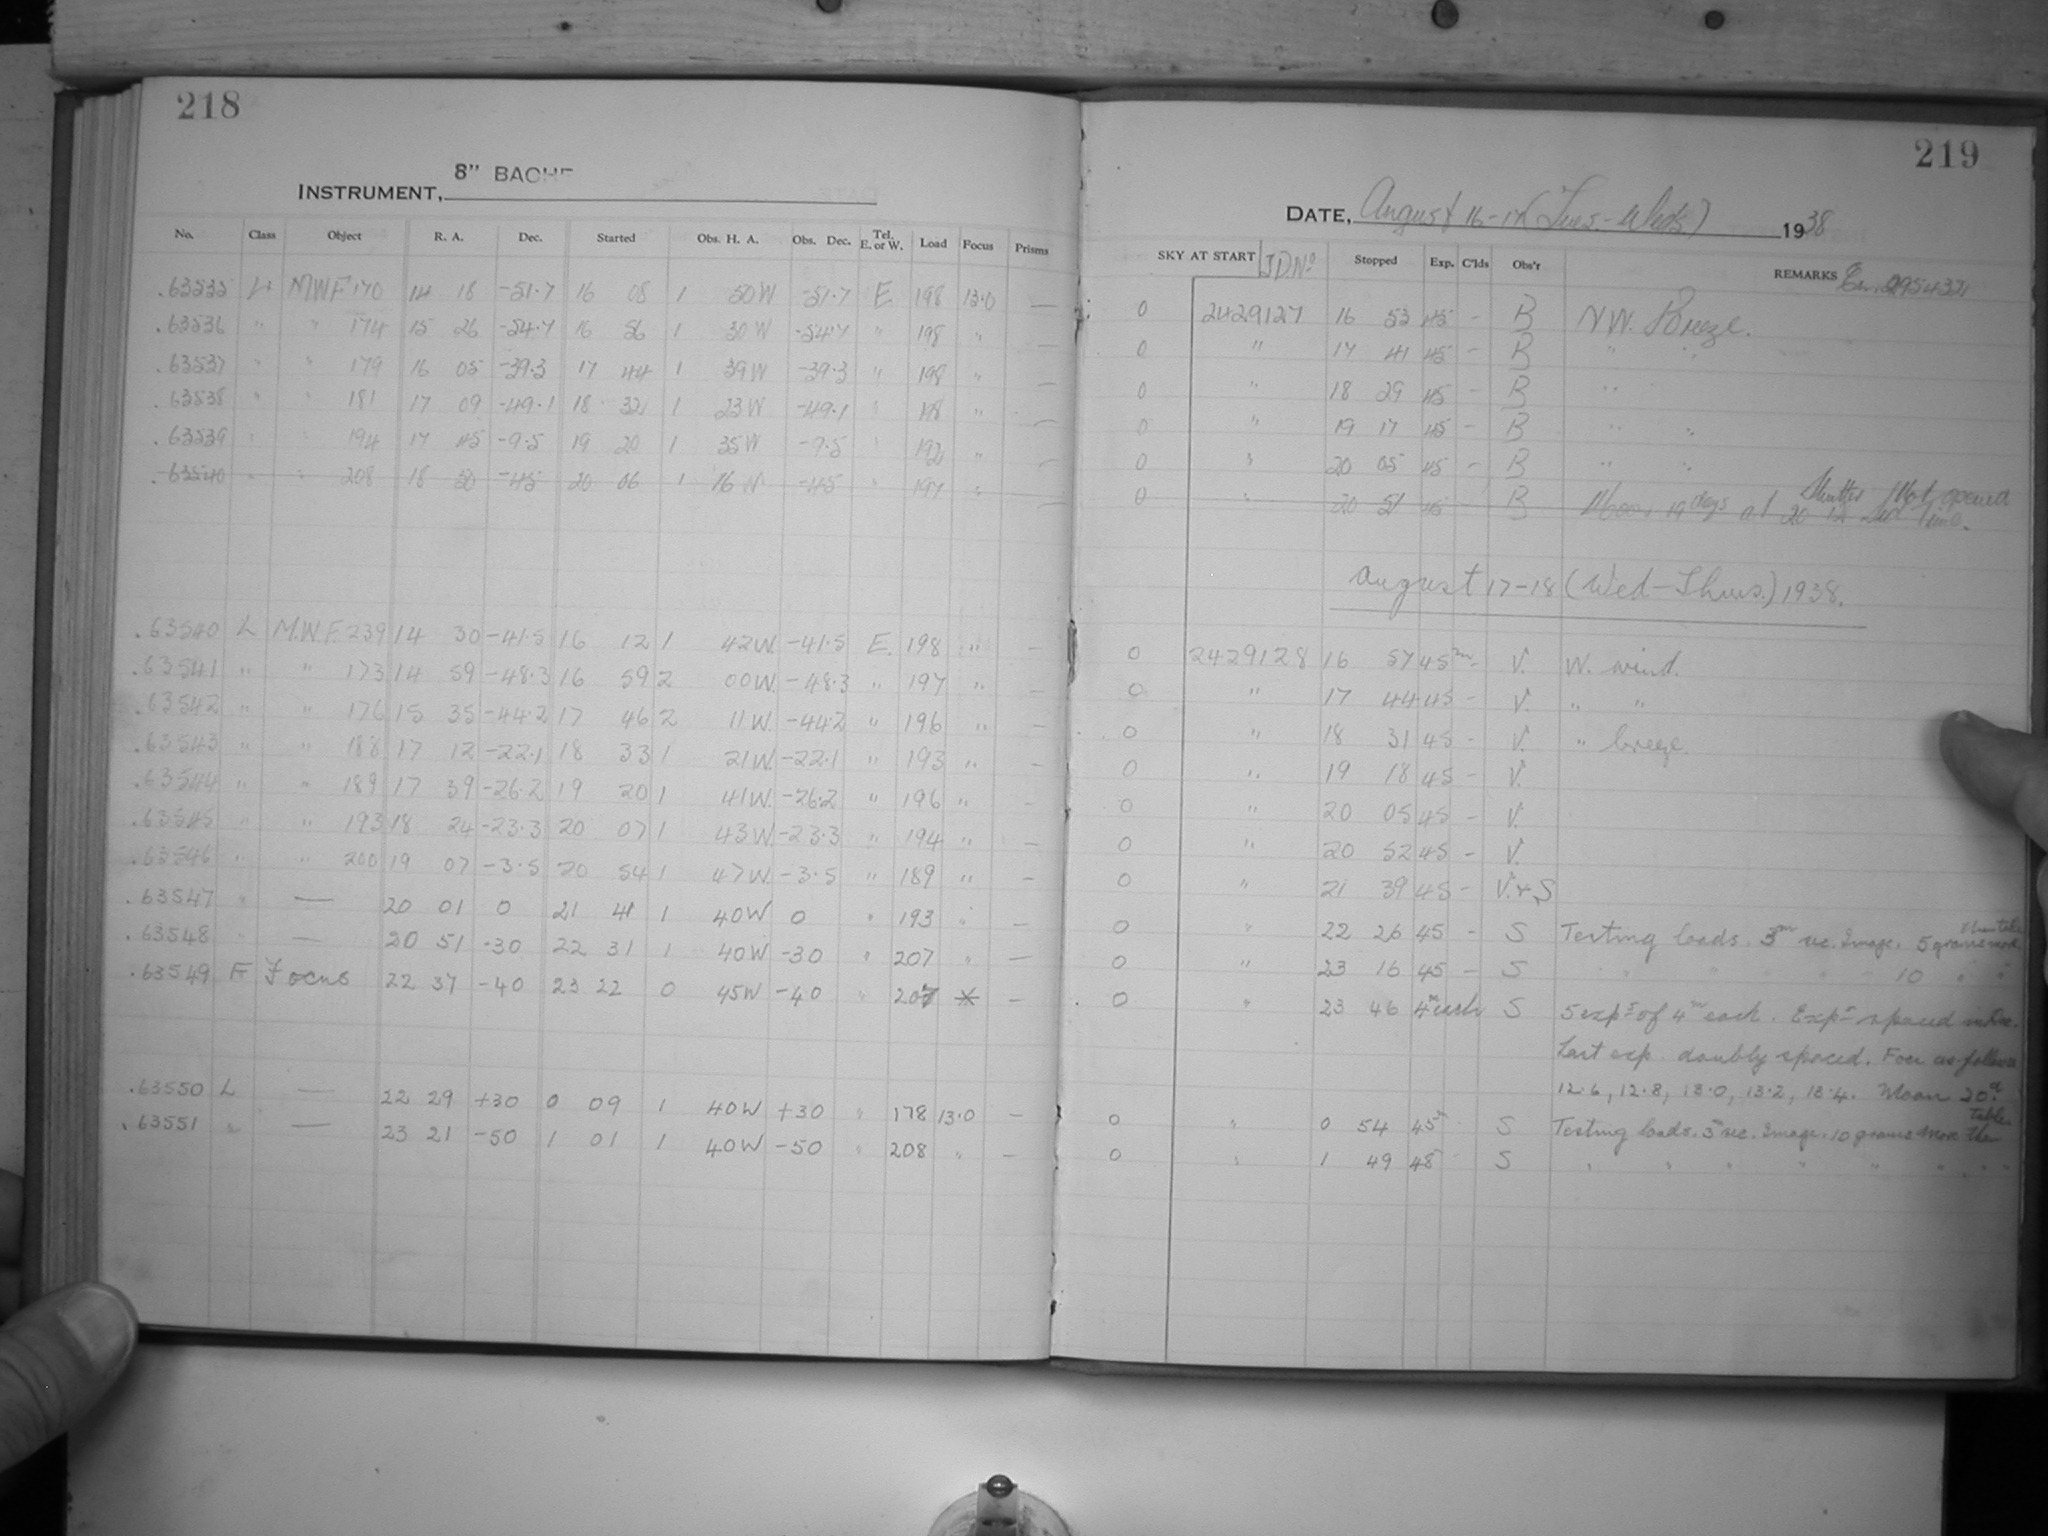 218
8" BACHE
INSTRUMENT,
No. Class Object R. A. Dec. Started Obs. H. A. Obs. Dec. Tel. E. or W. Load Focus Prisms
.63535 L MWF 170 14 18 -51.7 16 08 1 50W -51.7 E 198 13.0 —
.63536 " " 174 15 26 -54.7 16 56 1 30W -54.7 " 198 " —
.63537 " " 179 16 05 -39.3 17 44 1 39W -39.3 " 198 " —
.63538 " " 181 17 09 -49.1 18 32 1 23W -49.1 " 198 " —
.63539 " " 194 17 45 -9.5 19 20 1 35W -9.5 " 192 " —
.63540 " " 208 18 50 -45 20 06 1 16W -45 " 197 " —
.63540 L M.W.F. 239 14 30 -41.5 16 12 1 42W. -41.5 E. 198 " —
.63541 " " 173 14 59 -48.3 16 59 2 00W. -48.3 " 197 " —
.63542 " " 176 15 35 -44.2 17 46 2 11W. -44.2 " 196 " —
.63543 " " 188 17 12 -22.1 18 33 1 21W. -22.1 " 193 " —
.63544 " " 189 17 39 -26.2 19 20 1 41W. -26.2 " 196 " —
.63545 " " 193 18 24 -23.3 20 07 1 43W. -23.3 " 194 " —
.63546 " " 200 19 07 -3.5 20 54 1 47W. -3.5 " 189 " —
.63547 " — 20 01 0 21 41 1 40W 0 " 193 " —
.63548 " — 20 51 -30 22 31 1 40W -30 " 207 " —
.63549 F Focus 22 37 -40 23 22 0 45W -40 " 207 * —
.63550 L — 22 29 +30 0 09 1 40W +30 " 178 13.0 —
.63551 " — 23 21 -50 1 01 1 40W -50 " 208 " —
219
DATE, August 16-17 (Tues-Weds) 1938
SKY AT START J.D. No Stopped Exp. C'lds Obs'r REMARKS
0 2429127 16 53 45 - B NW. Breeze.
0 " 17 41 45 - B " "
0 " 18 29 45 - B "
0 " 19 17 45 - B " "
0 " 20 05 45 - B " "
Shutter Not opened
0 " 20 51 45 - B Moon 19 days at 20 12 Sid Time.
August 17-18 (Wed-Thurs.) 1938.
0 2429128 16 57 45m - V. W. wind.
0 " 17 44 45 - V. " "
0 " 18 31 45 - V. " breeze.
0 " 19 18 45 - V.
0 " 20 05 45 - V.
0 " 20 52 45 - V.
0 " 21 39 45 - V. & S
0 " 22 26 45 - S Testing loads. 3m sec. Image. 5 grams more than table
0 " 23 16 45 - S " " " 10 " "
0 " 23 46 4m each S 5 exps of 4m each. Exps spaced in Dec.
Last exp. doubly spaced. Focus as follows
12.6, 12.8, 13.0, 13.2, 13.4. Moon 20d.
0 " 0 54 45 - S Testing loads. 3m sec. Image. 10 grams More than table
0 " 1 49 48 - S " " " " " " " "